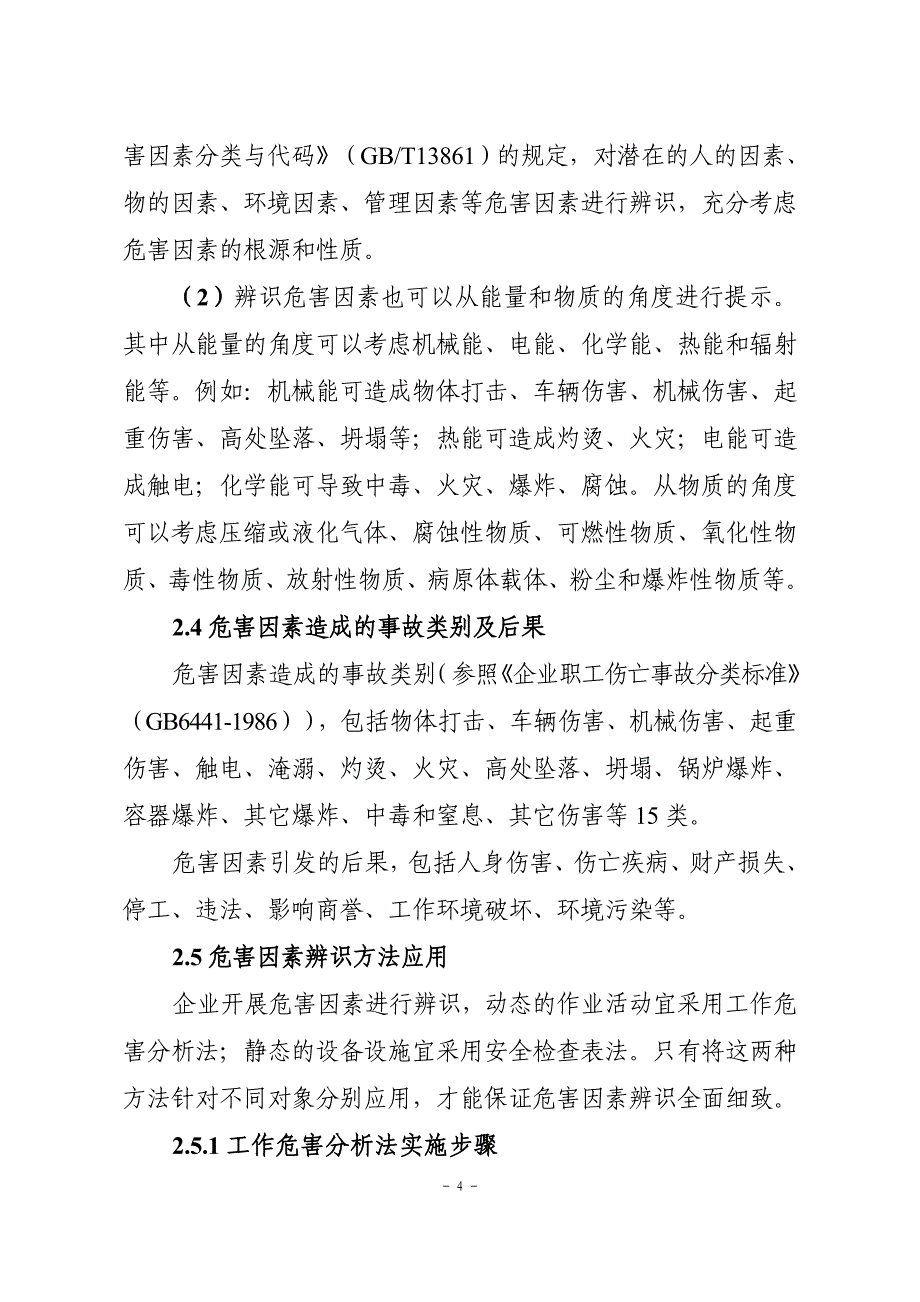 害因素分类与代码》（GB/T13861）的规定，对潜在的人的因素、
物的因素、环境因素、管理因素等危害因素进行辨识，充分考虑
危害因素的根源和性质。
（2）辨识危害因素也可以从能量和物质的角度进行提示。
其中从能量的角度可以考虑机械能、电能、化学能、热能和辐射
能等。例如：机械能可造成物体打击、车辆伤害、机械伤害、起
重伤害、高处坠落、坍塌等；热能可造成灼烫、火灾；电能可造
成触电；化学能可导致中毒、火灾、爆炸、腐蚀。从物质的角度
可以考虑压缩或液化气体、腐蚀性物质、可燃性物质、氧化性物
质、毒性物质、放射性物质、病原体载体、粉尘和爆炸性物质等。
2.4 危害因素造成的事故类别及后果
危害因素造成的事故类别（参照《企业职工伤亡事故分类标准》
（GB6441-1986）），包括物体打击、车辆伤害、机械伤害、起重
伤害、触电、淹溺、灼烫、火灾、高处坠落、坍塌、锅炉爆炸、
容器爆炸、其它爆炸、中毒和窒息、其它伤害等 15 类。
危害因素引发的后果，包括人身伤害、伤亡疾病、财产损失、
停工、违法、影响商誉、工作环境破坏、环境污染等。
2.5 危害因素辨识方法应用
企业开展危害因素进行辨识，动态的作业活动宜采用工作危
害分析法；静态的设备设施宜采用安全检查表法。只有将这两种
方法针对不同对象分别应用，才能保证危害因素辨识全面细致。
2.5.1 工作危害分析法实施步骤
- 4 -